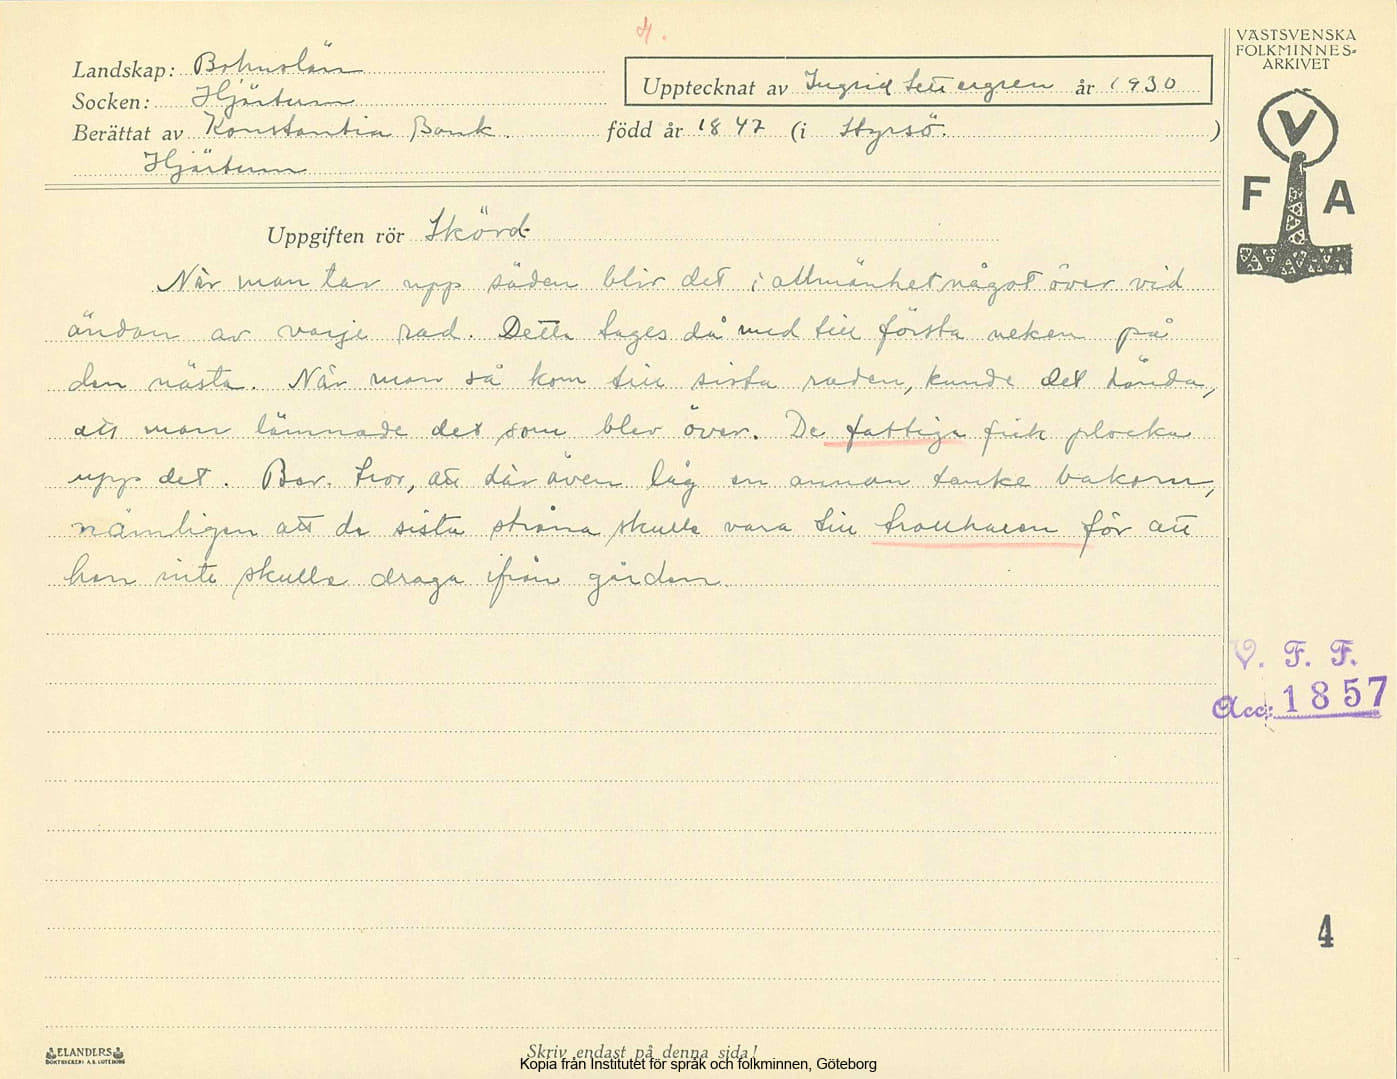 4.
VÄSTSVENSKA
FOLKMINNES-
ARKIVET
Landskap: Bohuslän
Socken: Hjärtum
Upptecknat av Ingrid Settergren år 1930
Berättat av Konstantia Bank. född år 1847 (i Styrsö. )
Hjärtum
V
F A
Uppgiften rör Skörd
När man tar upp säden blir det i allmänhet något över vid
ändan av varje rad. Detta tages då med till första neken på
den nästa. När man så kom till sista raden, kunde det hända,
att man lämnade det som blev över. De fattiga fick plocka
upp det. Ber. tror, att där även låg en annan tanke bakom,
nämligen att de sista stråna skulle vara till trollharen för att
han inte skulle draga ifrån gården.
V. F. F.
Acc: 1857
4
ELANDERS
BOKTRYCKERI A.B. GÖTEBORG
Skriv endast på denna sida!
Kopia från Institutet för språk och folkminnen, Göteborg